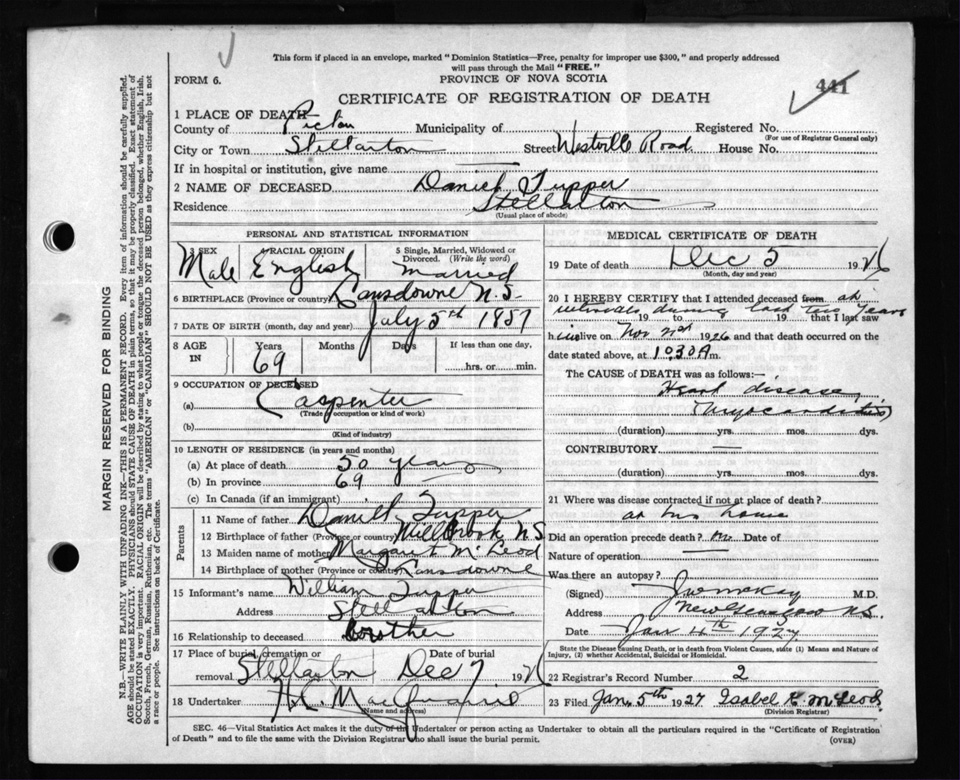 This form if placed in an envelope, marked "Dominion Statistics—Free, penalty for improper use $300," and properly addressed
will pass through the Mail "FREE."
FORM 6.
PROVINCE OF NOVA SCOTIA
CERTIFICATE OF REGISTRATION OF DEATH
441
1 PLACE OF DEATH
County of Pictou Municipality of Registered No.
(For use of Registrar General only)
City or Town Stellarton Street Westville Road House No.
If in hospital or institution, give name
2 NAME OF DECEASED Daniel Tupper
Residence Stellarton
(Usual place of abode)
PERSONAL AND STATISTICAL INFORMATION
3 SEX Male
4 RACIAL ORIGIN English
5 Single, Married, Widowed or Divorced. (Write the word) Married
6 BIRTHPLACE (Province or country) Lansdowne N.S.
7 DATE OF BIRTH (month, day and year) July 5th 1857
8 AGE IN Years 69 Months Days If less than one day, hrs. or min.
9 OCCUPATION OF DECEASED
(a) Carpenter
(Trade, occupation or kind of work)
(b)
(Kind of industry)
10 LENGTH OF RESIDENCE (in years and months)
(a) At place of death 50 years
(b) In province 69
(c) In Canada (if an immigrant)
Parents
11 Name of father Daniel Tupper
12 Birthplace of father (Province or country) Millbrook N S
13 Maiden name of mother Margaret McLeod
14 Birthplace of mother (Province or country) Lansdowne
15 Informant's name William Tupper
Address Stellarton
16 Relationship to deceased brother
17 Place of burial, cremation or removal Stellarton Date of burial Dec 7 1926
18 Undertaker
(Name and address)
MEDICAL CERTIFICATE OF DEATH
19 Date of death Dec 5 1926
(Month, day and year)
20 I HEREBY CERTIFY that I attended deceased from at
intervals during last two years
19 to 19 that I last saw
him alive on Nov 1926 and that death occurred on
date stated above, at 10.30 A m.
The CAUSE OF DEATH was as follows:—
Heart disease,
(Myocarditis)
(duration) yrs. mos. dys.
CONTRIBUTORY
(duration) yrs. mos. dys.
21 Where was disease contracted if not at place of death?
at his house
Did an operation precede death? no Date of
Nature of operation
Was there an autopsy?
(Signed) J W McKay M.D.
Address New Glasgow N.S.
Date Jan 4th 1927
State the Disease Causing Death, or in death from Violent Causes, state (1) Means and Nature of
Injury, (2) whether Accidental, Suicidal or Homicidal.
22 Registrar's Record Number 2
23 Filed Jan. 5th 1927 Isabel K. McLeod
(Division Registrar)
SEC. 46—Vital Statistics Act makes it the duty of the Undertaker or person acting as Undertaker to obtain all the particulars required in the "Certificate of Registration
of Death" and to file the same with the Division Registrar who shall issue the burial permit.
(OVER)
MARGIN RESERVED FOR BINDING
N.B.—WRITE PLAINLY WITH UNFADING INK—THIS IS A PERMANENT RECORD. Every item of information should be carefully supplied.
AGE should be stated EXACTLY. PHYSICIANS should STATE CAUSE OF DEATH in plain terms, so that it may be properly classified. Exact statement of
OCCUPATION is very important. RACIAL ORIGIN will be described by stating to what people or tongue the deceased person belonged, whether English, Irish,
Scotch, French, German, Russian, Ruthenian, etc. The terms "AMERICAN" or "CANADIAN" SHOULD NOT BE USED as they express citizenship but not
a race or people. See instructions on back of Certificate.